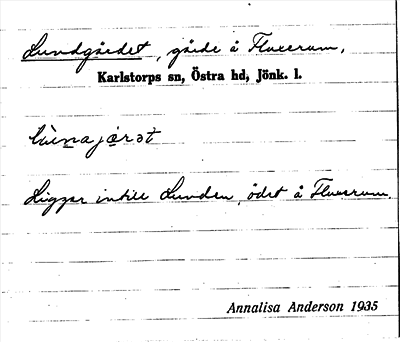 Lundgärdet, gärde å Fluxerum,
Karlstorps sn, Östra hd, Jönk. l.
Ligger intill Lunden, ödst å Fluxerum.
Annalisa Anderson 1935